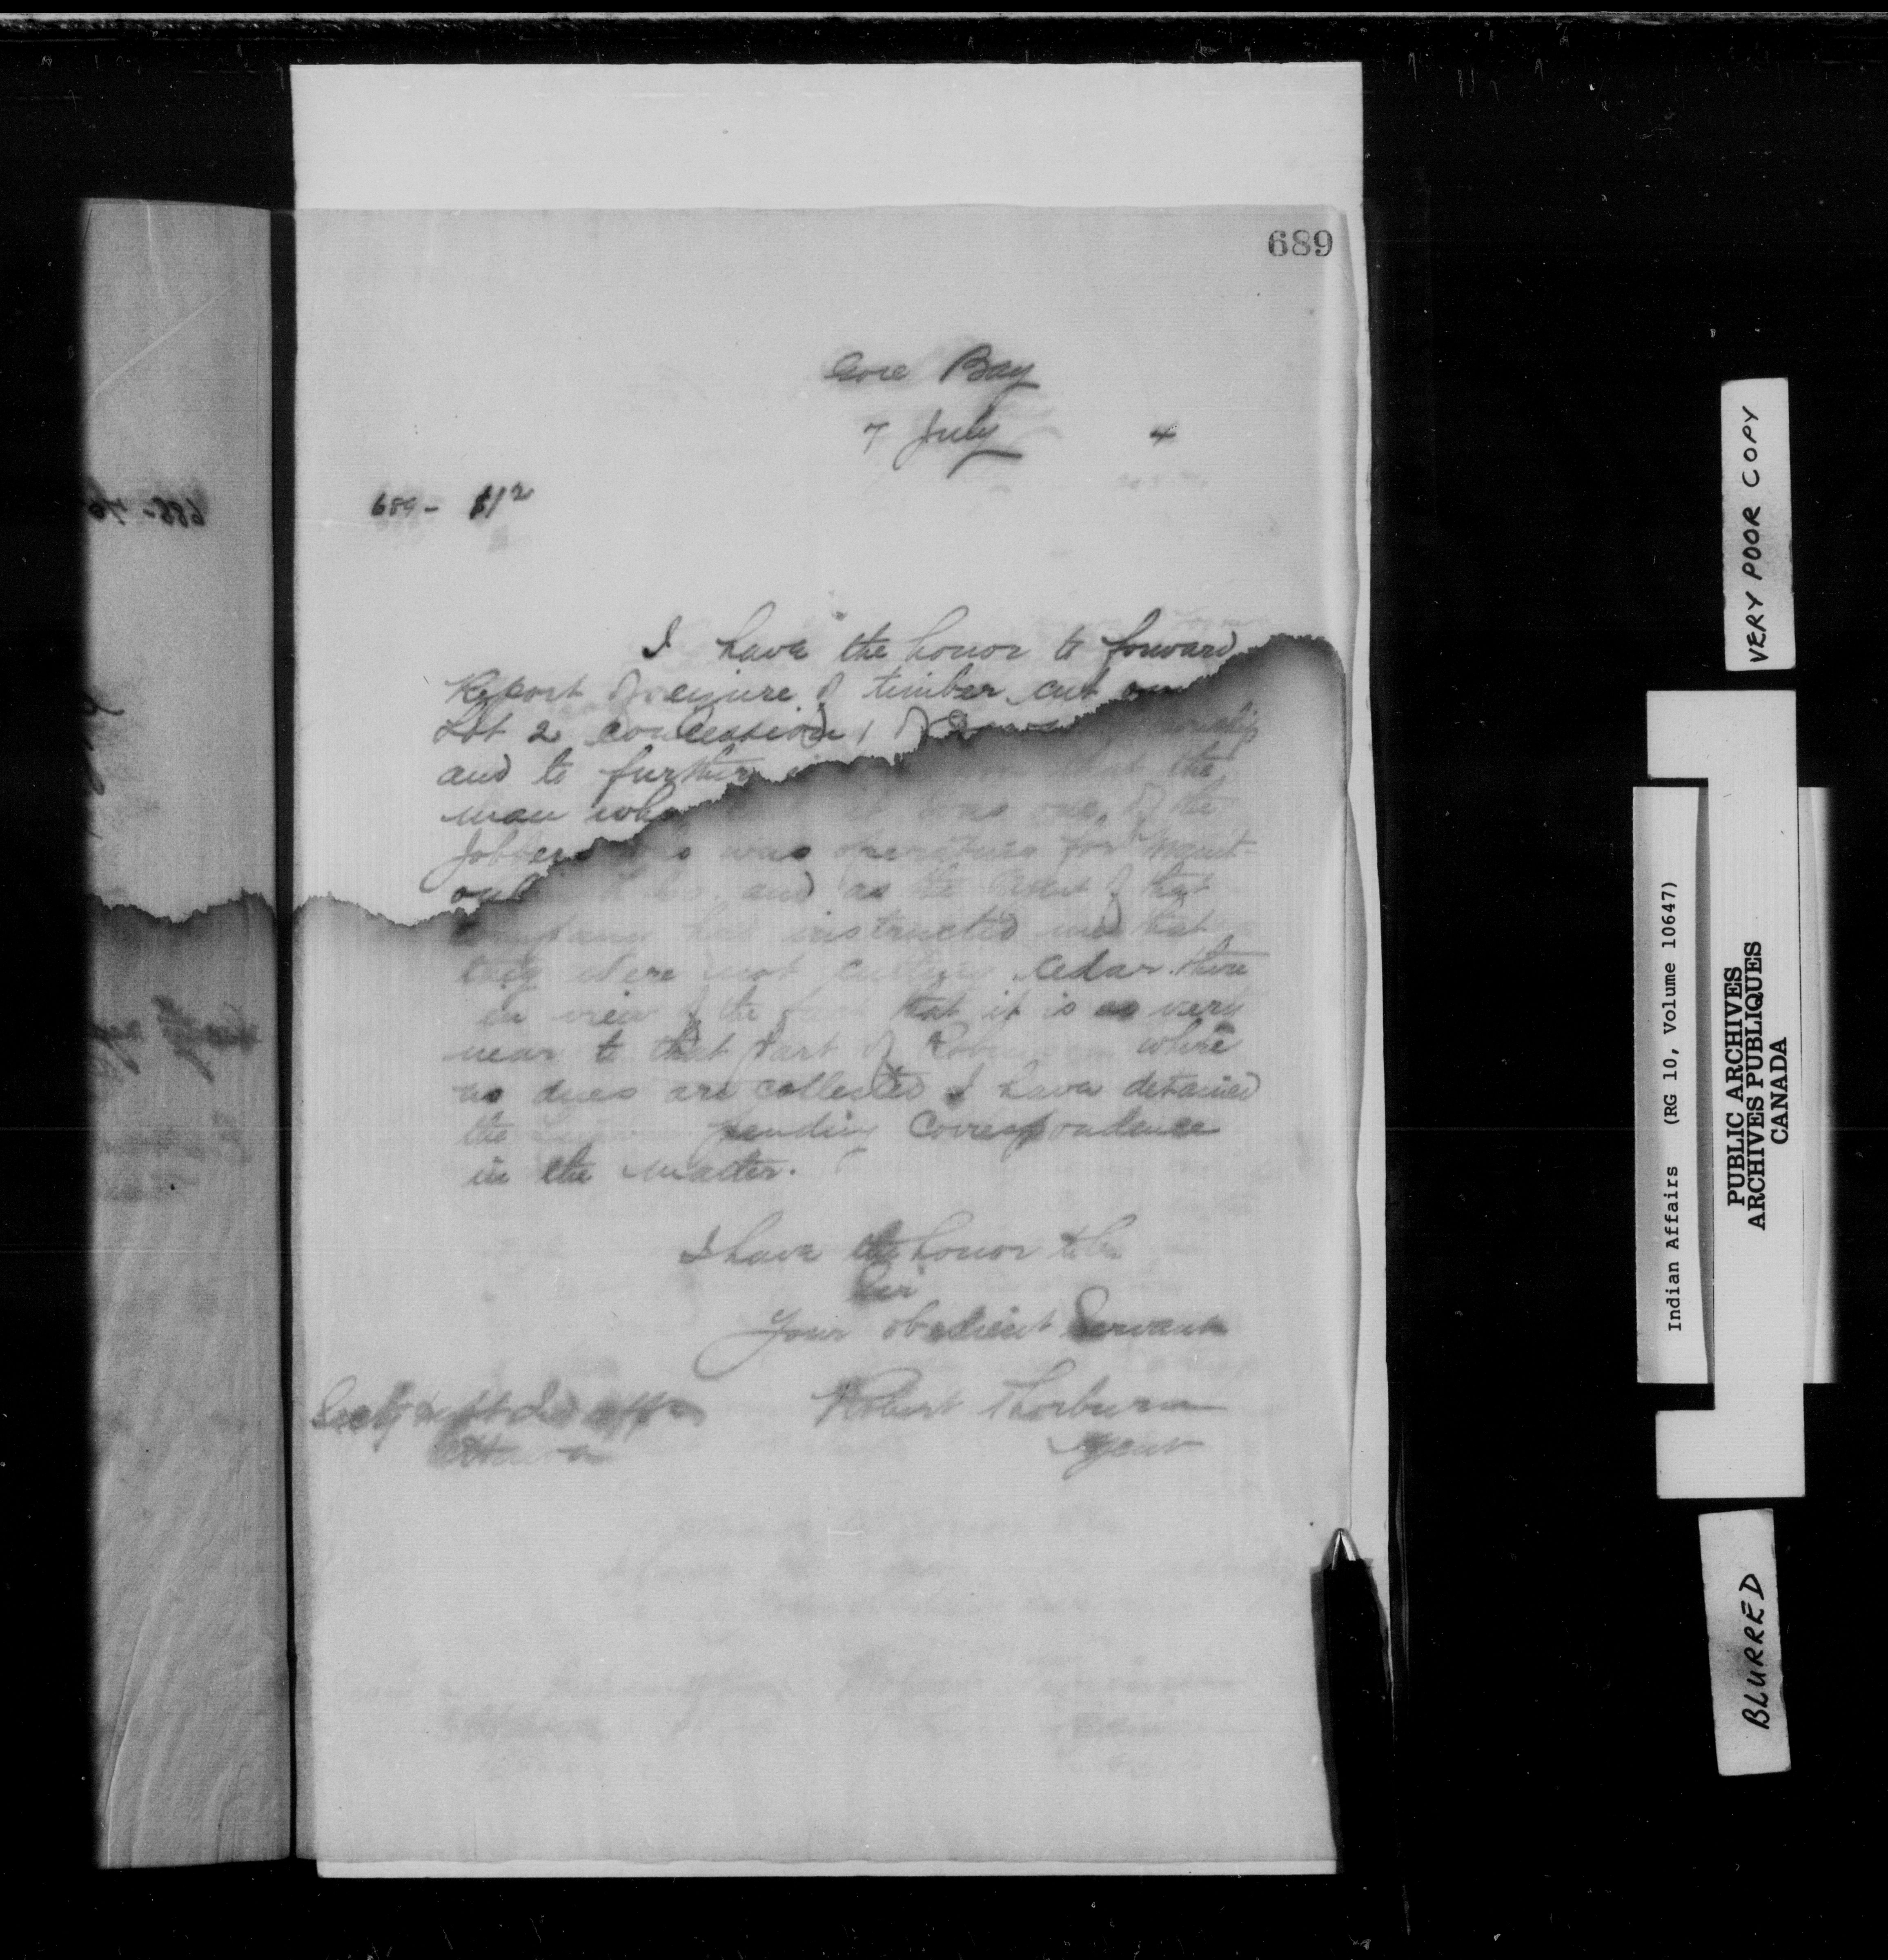 689
Gore Bay
7 July 4
689 - $1 2
I have the honor to forward
Report of seizure of timber cut on
Lot 2 concession 1 of
and to further that the
man who it was one of the
Jobbers was operating for
and as the Agent of that
Company had instructed me that
they were not cutting cedar there
in view of the fact that it is so very
near to that part of Robinson where
no dues are collected I have detained
the pending Correspondence
in the matter.
I have the honor to be
Sir
Your obedient Servant
Robert Thorburn
Agent
Secty Dept Ind Affrs
Ottawa
VERY POOR COPY
Indian Affairs (RG 10, Volume 10647)
PUBLIC ARCHIVES
ARCHIVES PUBLIQUES
CANADA
BLURRED